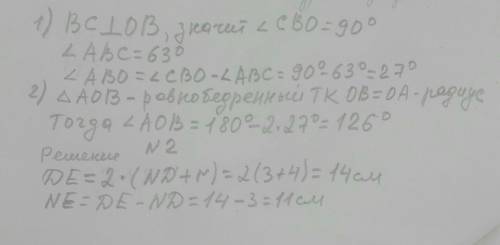 1) BC⊥OB, значит ∠CBO=90°
∠ABC=63°
∠ABO=∠CBO-∠ABC=90°-63°=27°
2) △AOB-равнобедренный тк OB=OA-радиус
Тогда ∠AOB=180°-2·27°=126°
N2
Решение
DE=2·(ND+r)=2(3+4)=14см
NE=DE-ND=14-3=11см